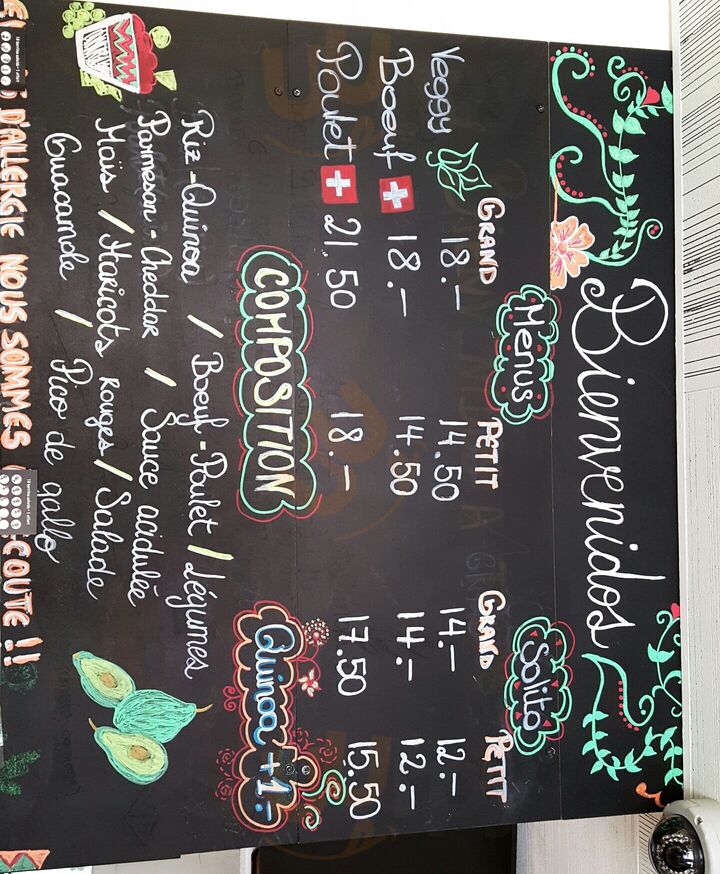 Bienvenidos
Menus
Solito
GRAND PETIT GRAND PETIT
Veggy 18.- 14.50 14.- 12.-
Boeuf 18.- 14.50 14.- 12.-
Poulet 21.50 18.- 17.50 15.50
COMPOSITION
Quinoa +1.-
Riz - Quinoa / Boeuf - Poulet / Légumes
Parmesan - Cheddar / Sauce acidulée
Maïs / Haricots Rouges / Salade
Guacamole / Pico de gallo
D'ALLERGIE NOUS SOMMES COUTE !!